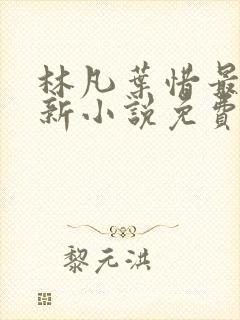 林凡葉惜最
新小說免費
黎元洪